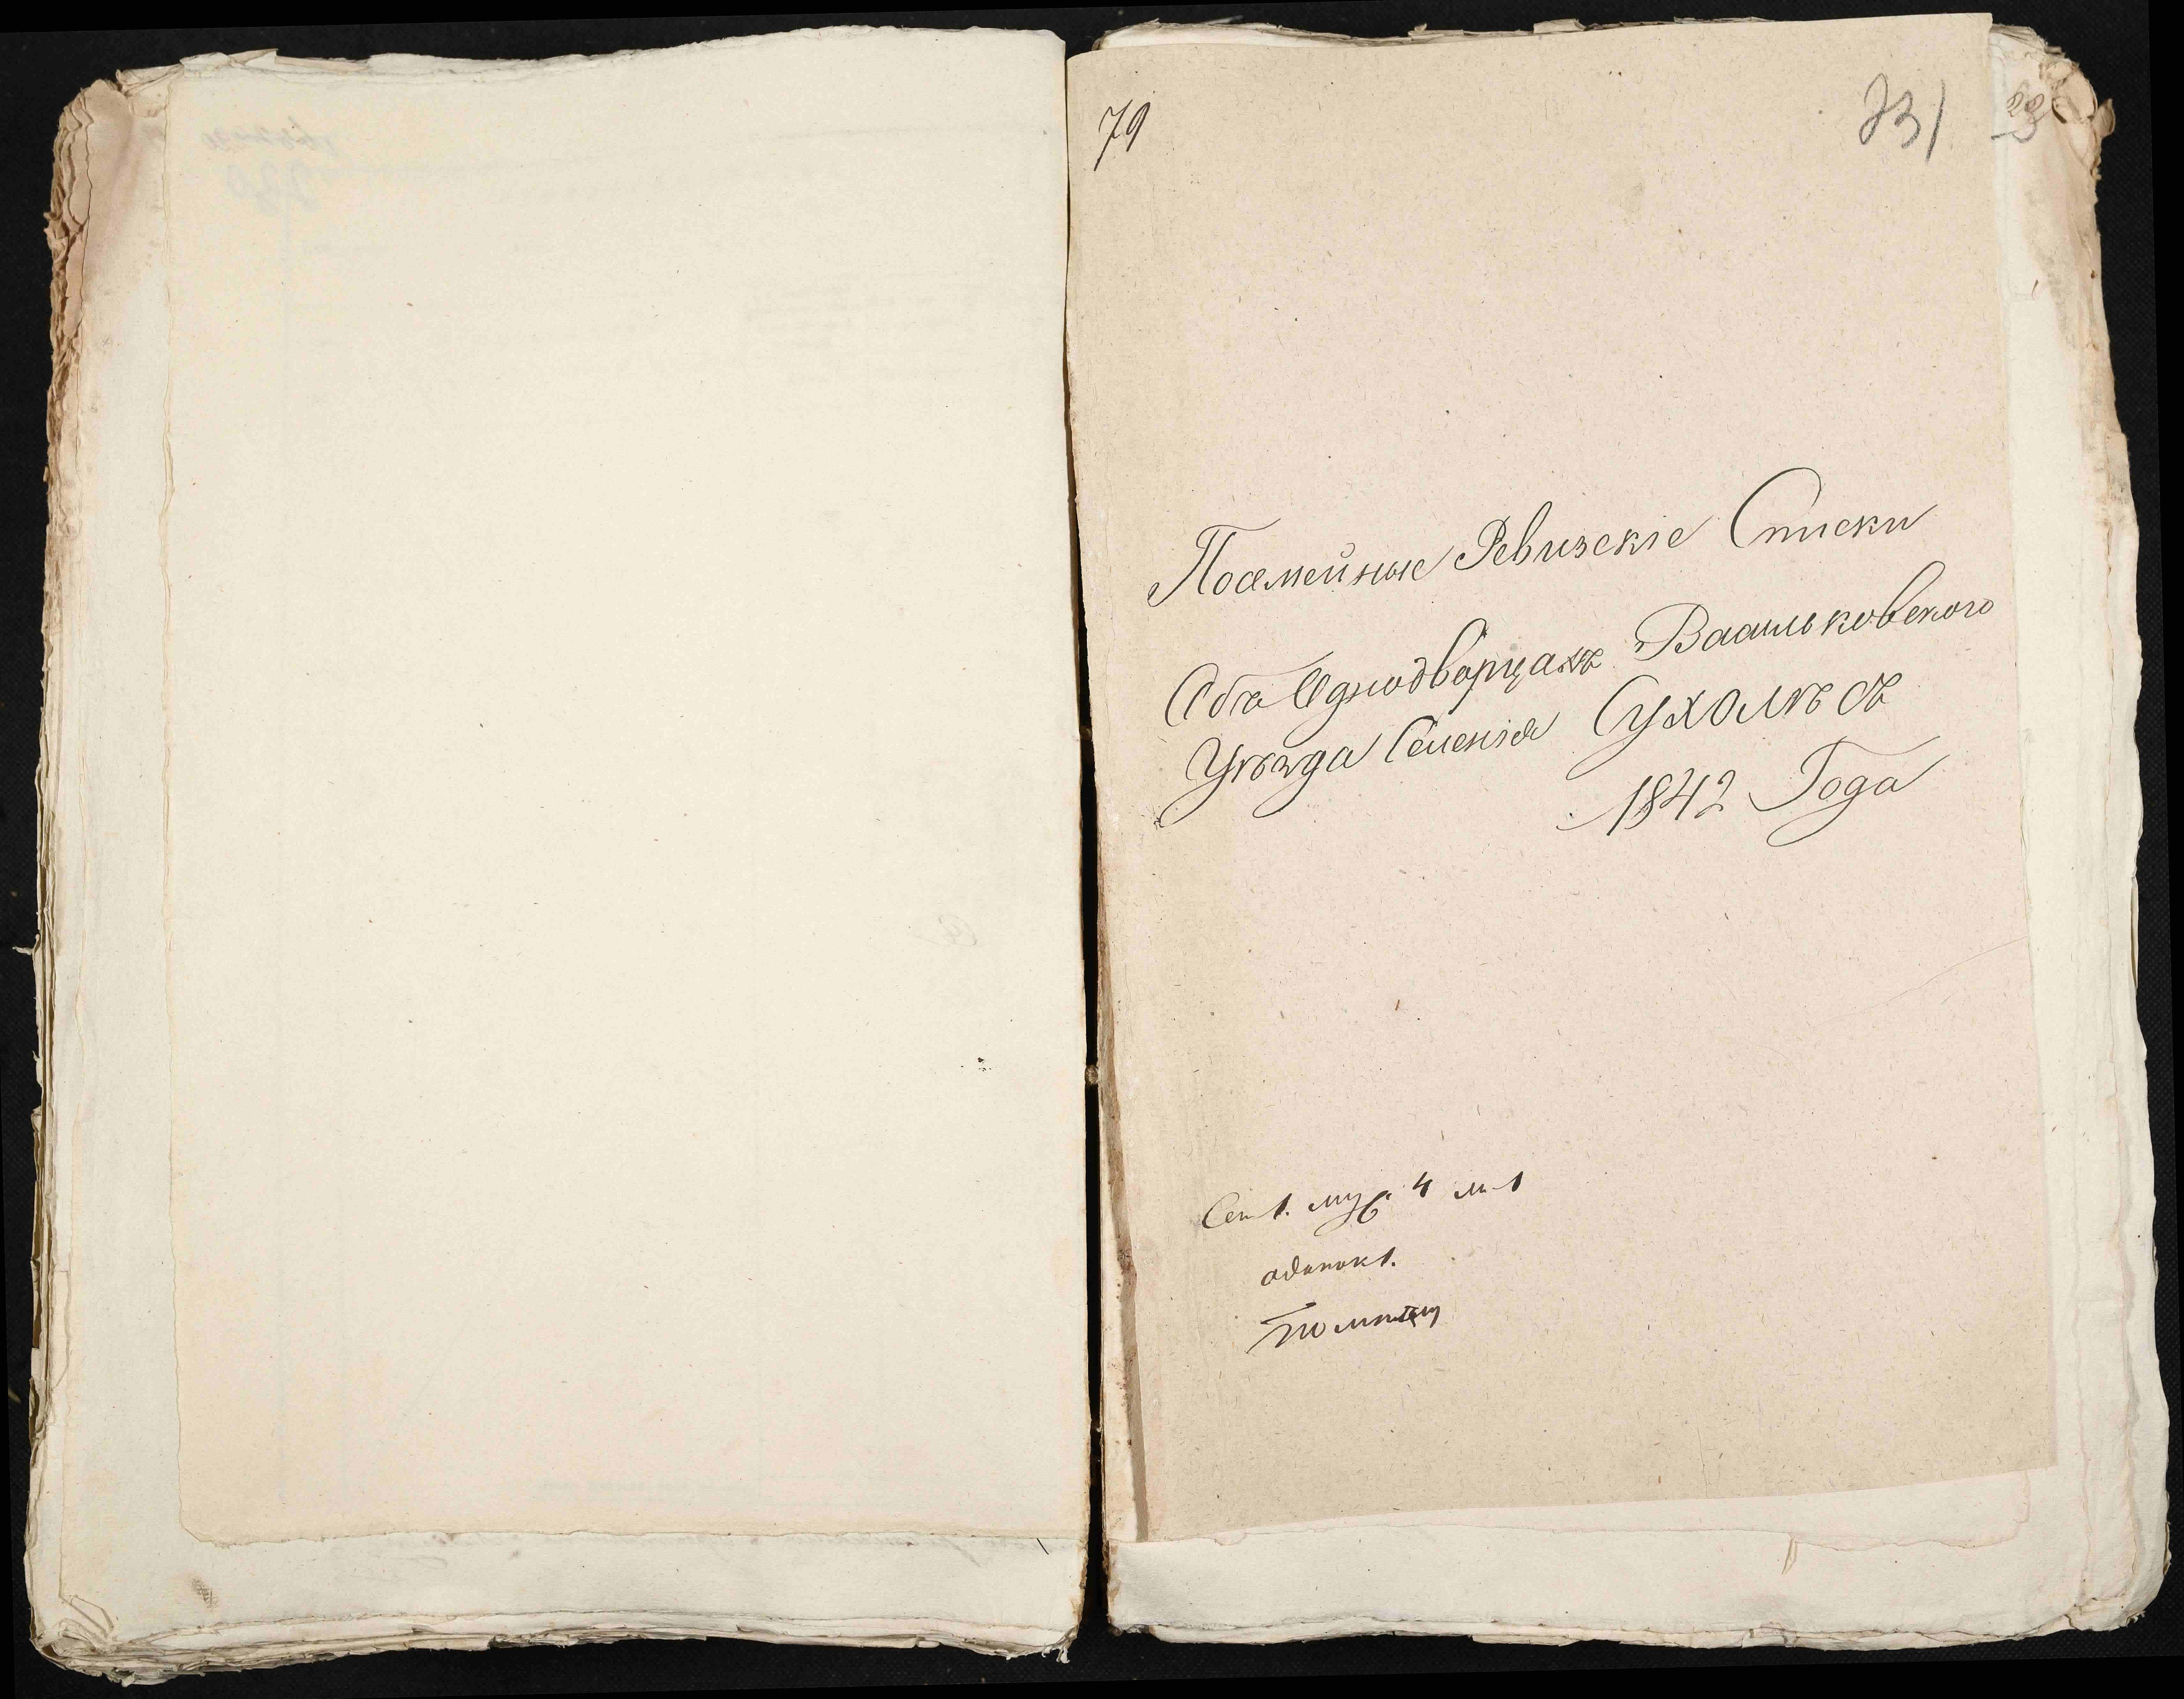 79
231
23
Посемейные Ревизскіе Списки
Объ Однодворцахъ Васильковского
Уѣзда Селенія Сухолѣсъ
1842 Года
Сем 1. муж 4 м 1
одинок 1.